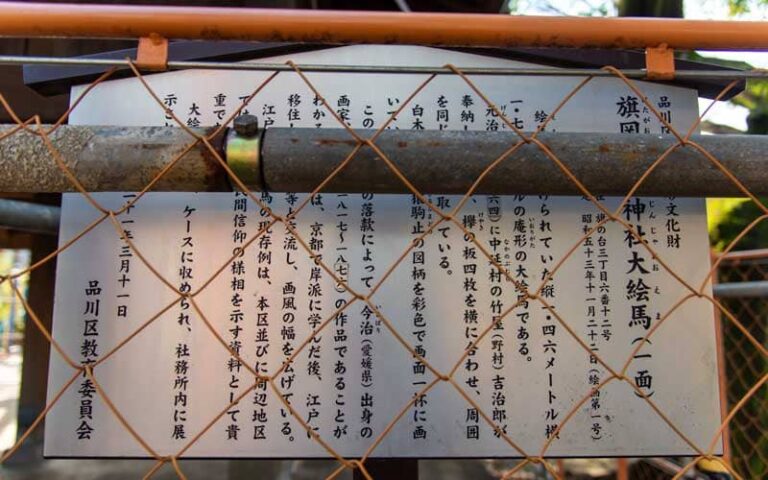 品川区 の文化財
旗岡 神社大絵馬(一面)
はたがおか じんじゃおおえま
旗の台三丁目六番十二号
定 昭和五十三年十一月二十二日(絵画第一号)
絵 けられていた縦一・四六メートル横
一・七 ルの庵形の大絵馬である。
元治 四)に中延村の竹屋(野村)吉治郎が
奉納し 、欅の板四枚を横に合わせ、周囲
を同じ 取っている。
白木 猿駒止の図柄を彩色で画面一杯に画
いてい
この の落款によって、今治(愛媛県)出身の
画家 八一七〜一八七六)の作品であることが
わか は、京都で岸派に学んだ後、江戸に
移住し 等と交流し、画風の幅を広げている。
江戸 馬の現存例は、本区並びに周辺地区
で 民間信仰の様相を示す資料として貴
重で
大絵 ケースに収められ、社務所内に展
示さ
十一年三月十一日
品川区教育委員会